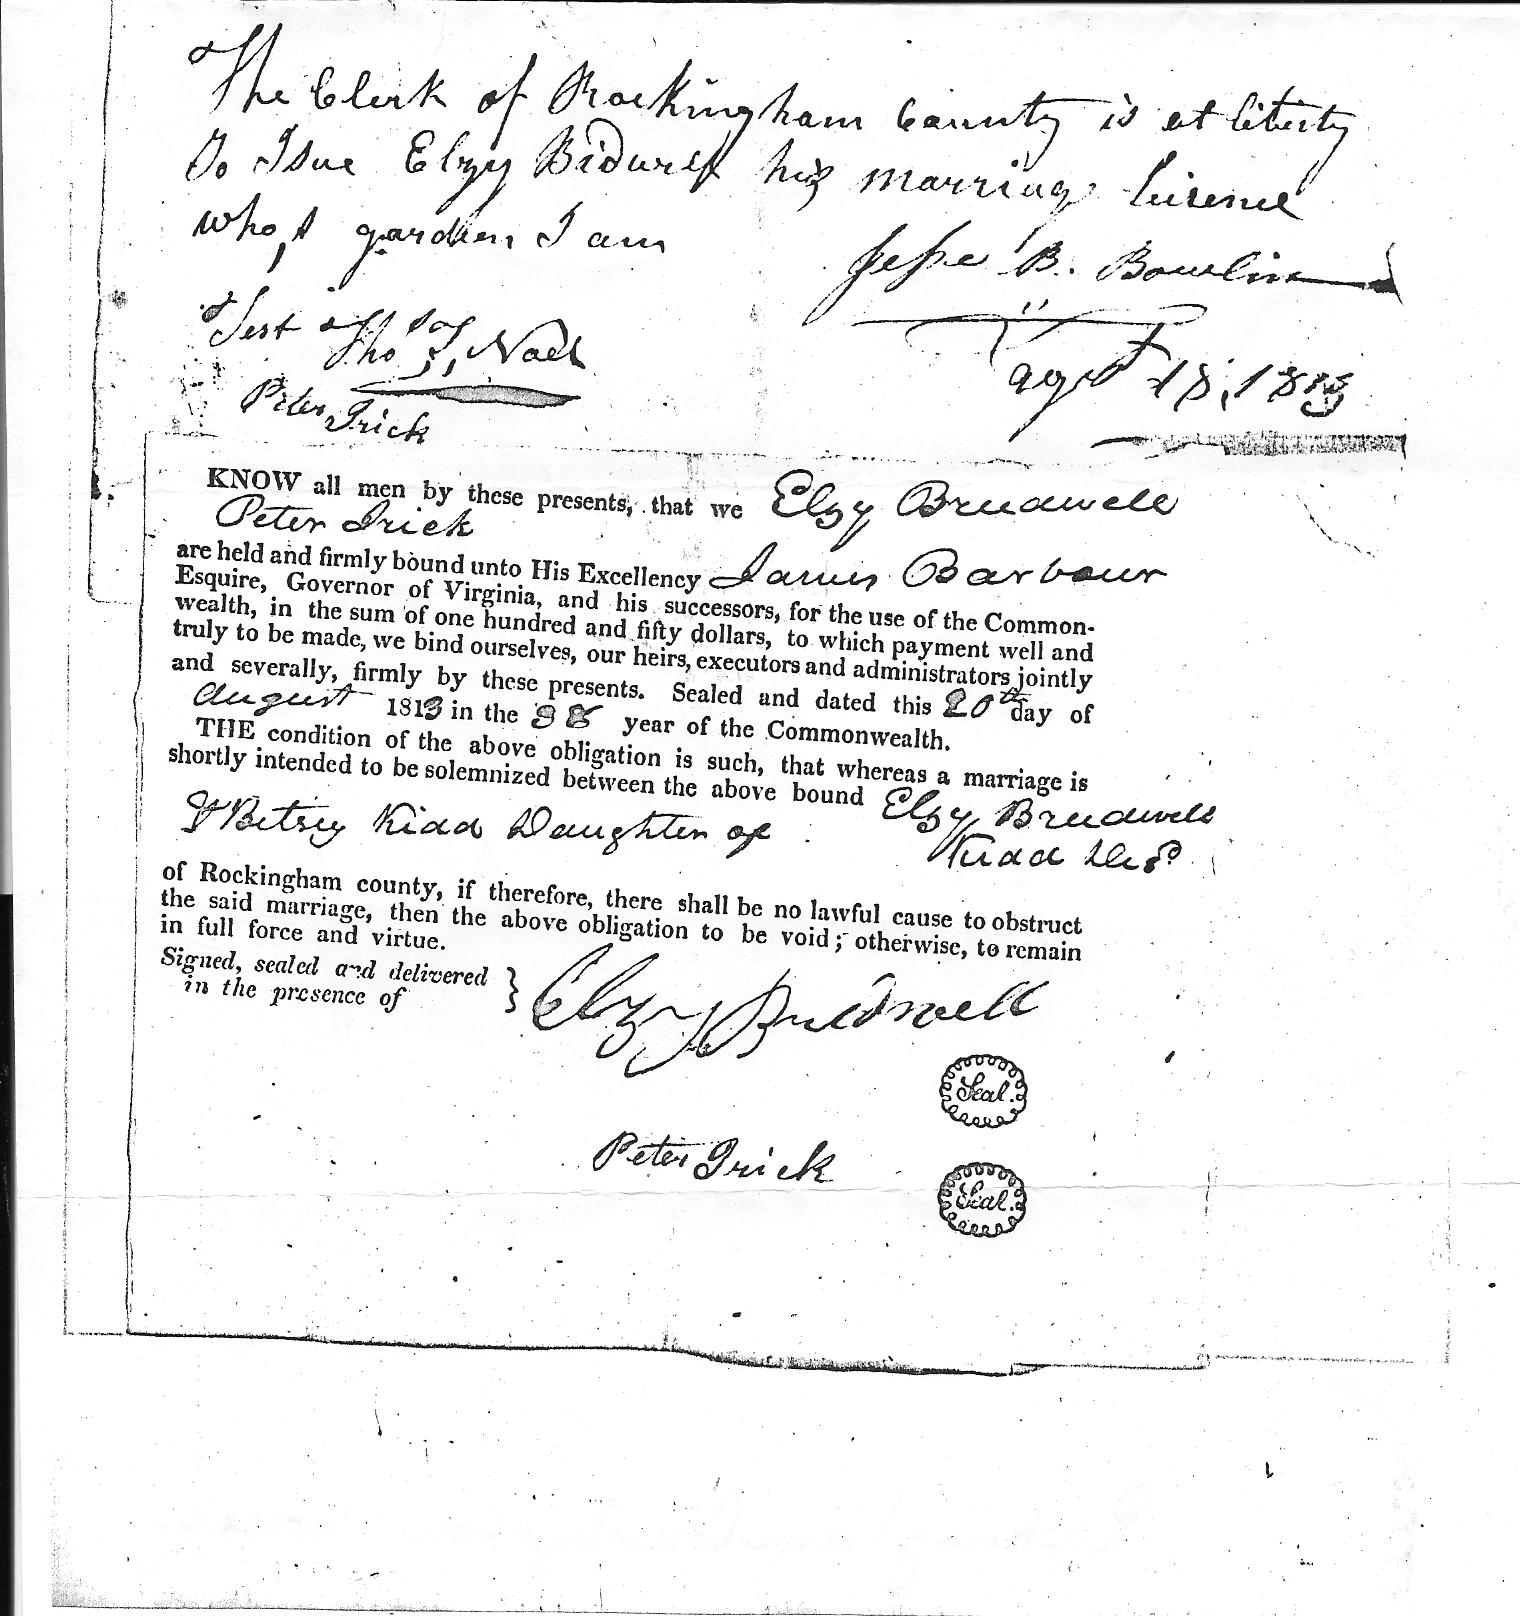 The Clerk of Rockingham County is at liberty
To Isue Elzy Bidwell his marriag licence
who,s garden I am
Jesse B. Bowlin
Test
Tho S, Noel
Peter Irick
agst 18, 1813
KNOW all men by these presents, that we Elzy Breedwell
Peter Irick
are held and firmly bound unto His Excellency James Barbour
Esquire, Governor of Virginia, and his successors, for the use of the Common-
wealth, in the sum of one hundred and fifty dollars, to which payment well and
truly to be made, we bind ourselves, our heirs, executors and administrators jointly
and severally, firmly by these presents. Sealed and dated this 20th day of
August 1813 in the 38 year of the Commonwealth.
THE condition of the above obligation is such, that whereas a marriage is
shortly intended to be solemnized between the above bound Elzy Breedwell
& Betsey Kidd Daughter of Kidd Decd
of Rockingham county, if therefore, there shall be no lawful cause to obstruct
the said marriage, then the above obligation to be void; otherwise, to remain
in full force and virtue.
Signed, sealed and delivered
in the presence of
Elzy Breedwell
Seal.
Peter Irick
Seal.